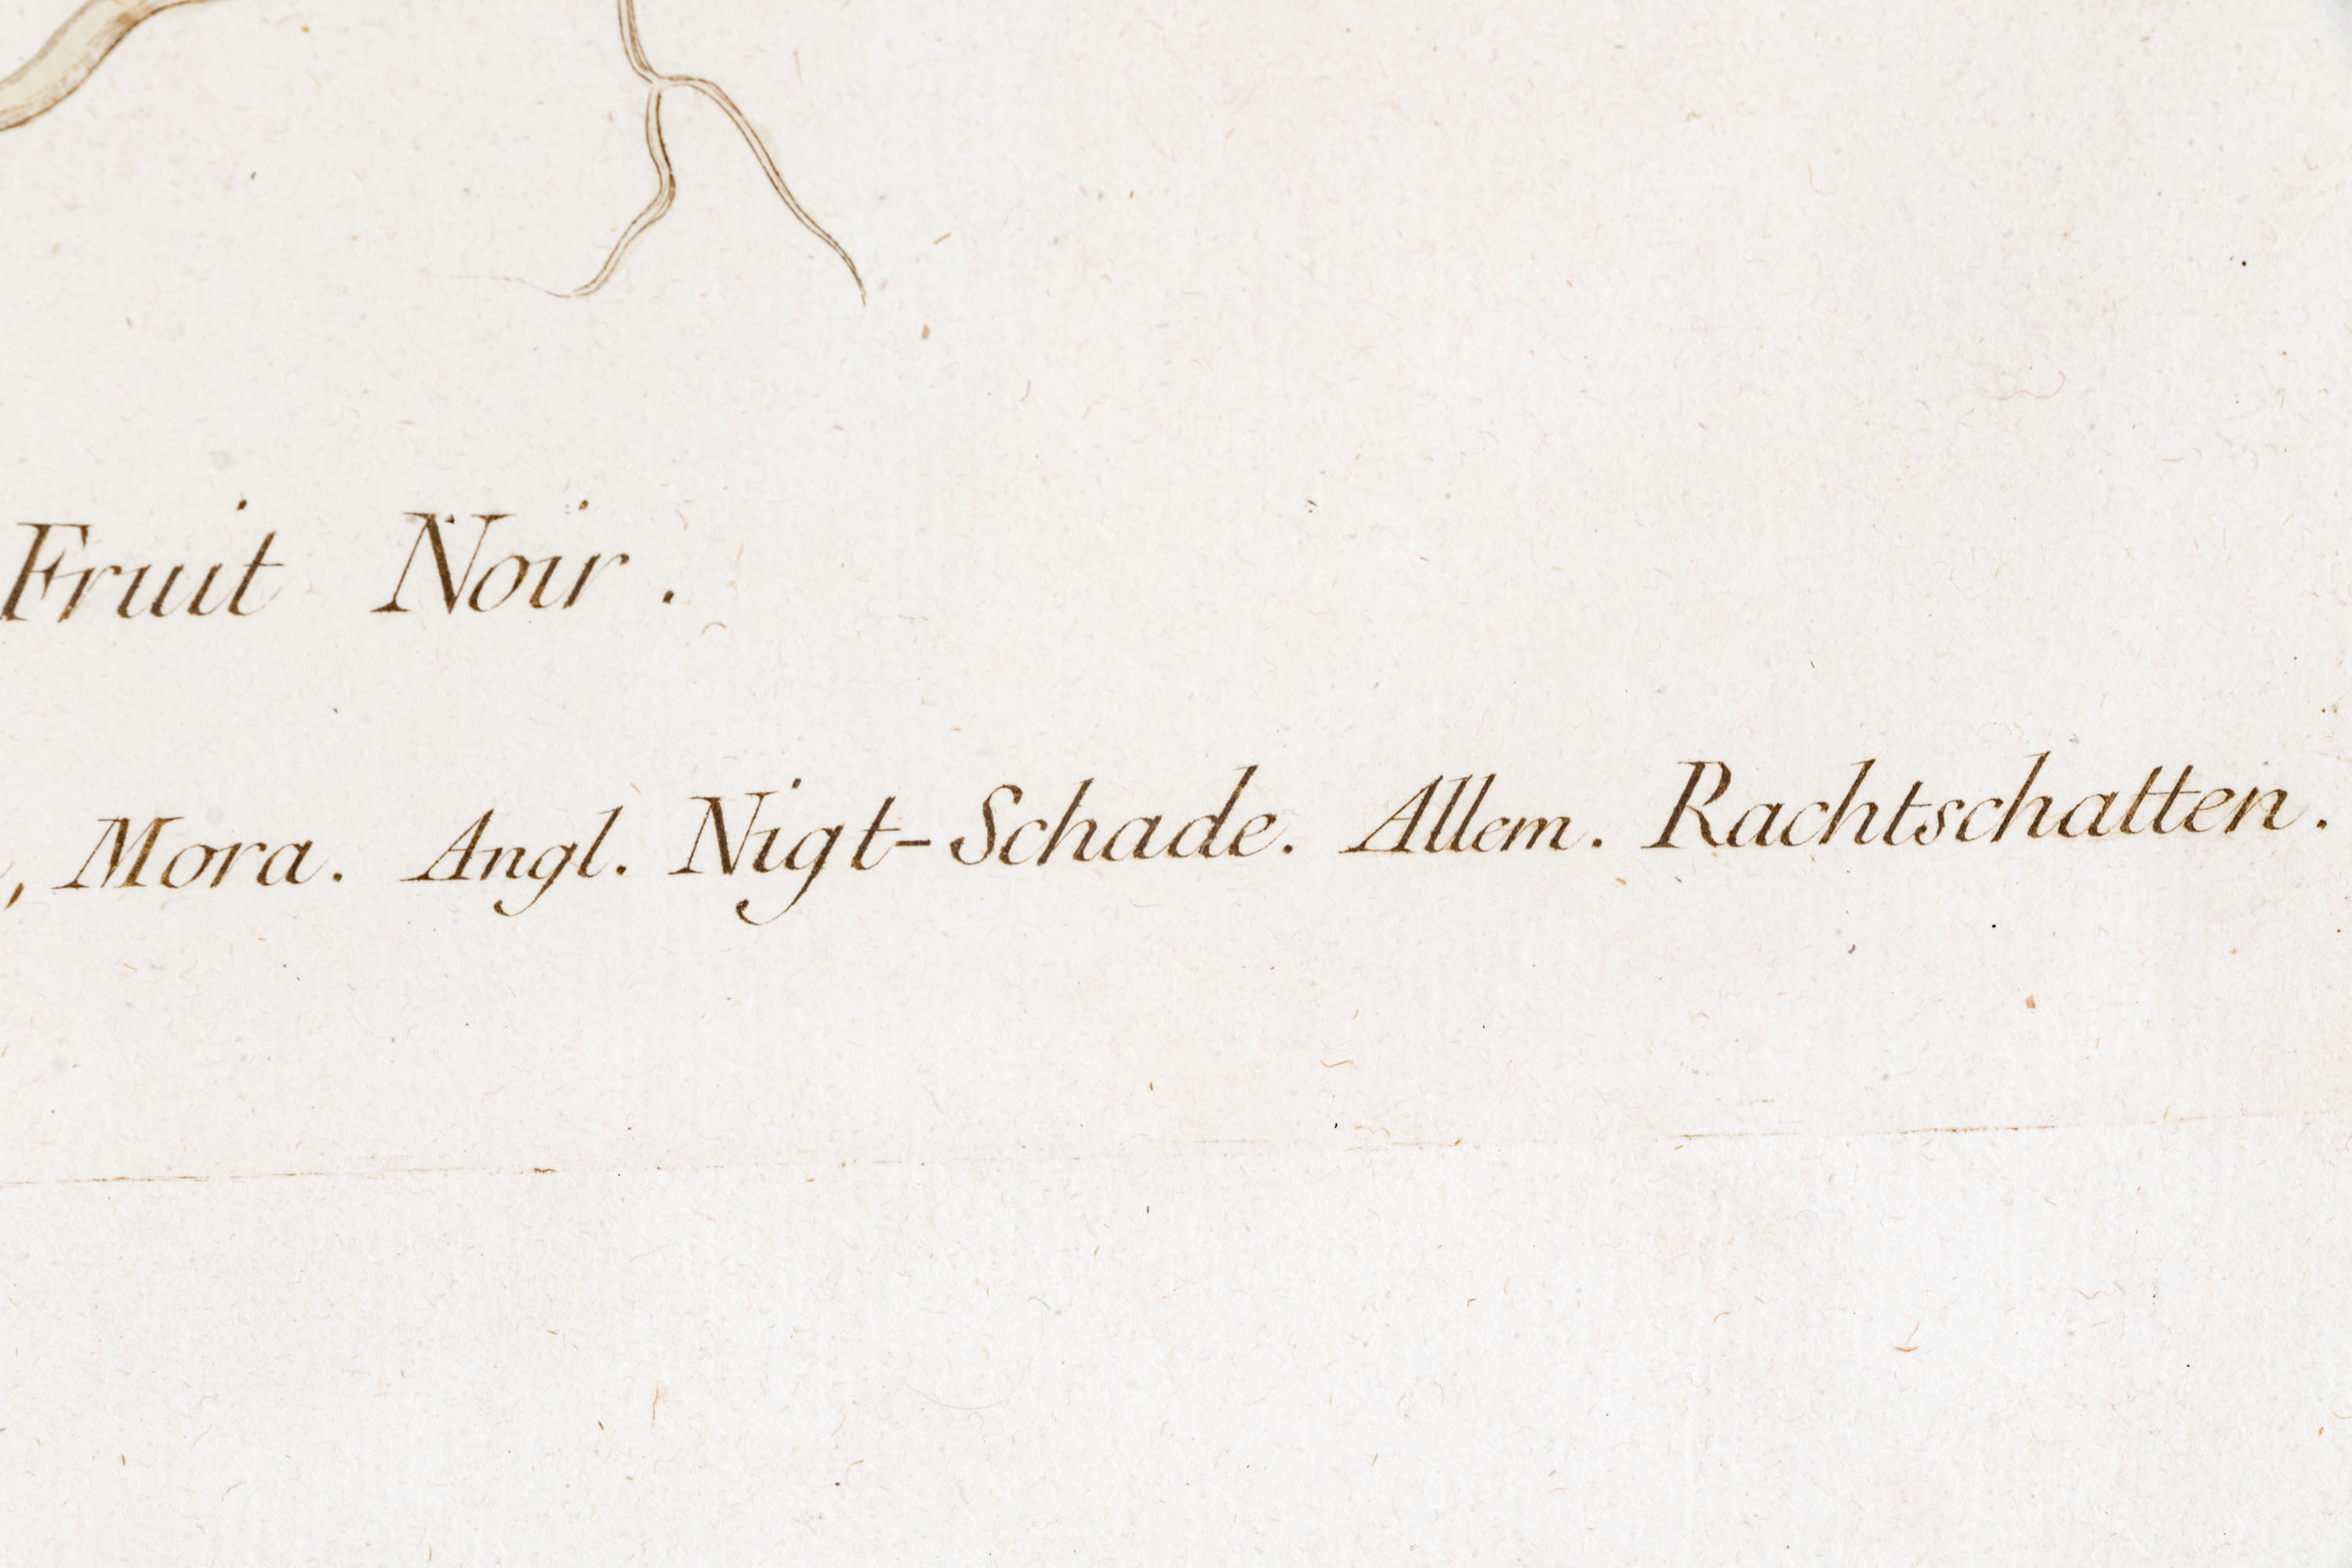 Fruit Noir.
, Mora. Angl. Nigt-Schade. Allem. Rachtschatten.